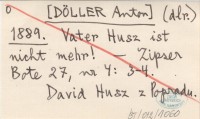 o [DÖLLER Anton] (dlr.)
1889. Vater Husz ist
nicht mehr! — Zipser
Bote 27, nr 4: 3-4.
David Husz z Popradu.